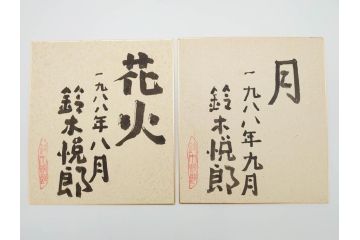 花火
一九八八年八月
鈴木悦郎
月
一九八八年九月
鈴木悦郎